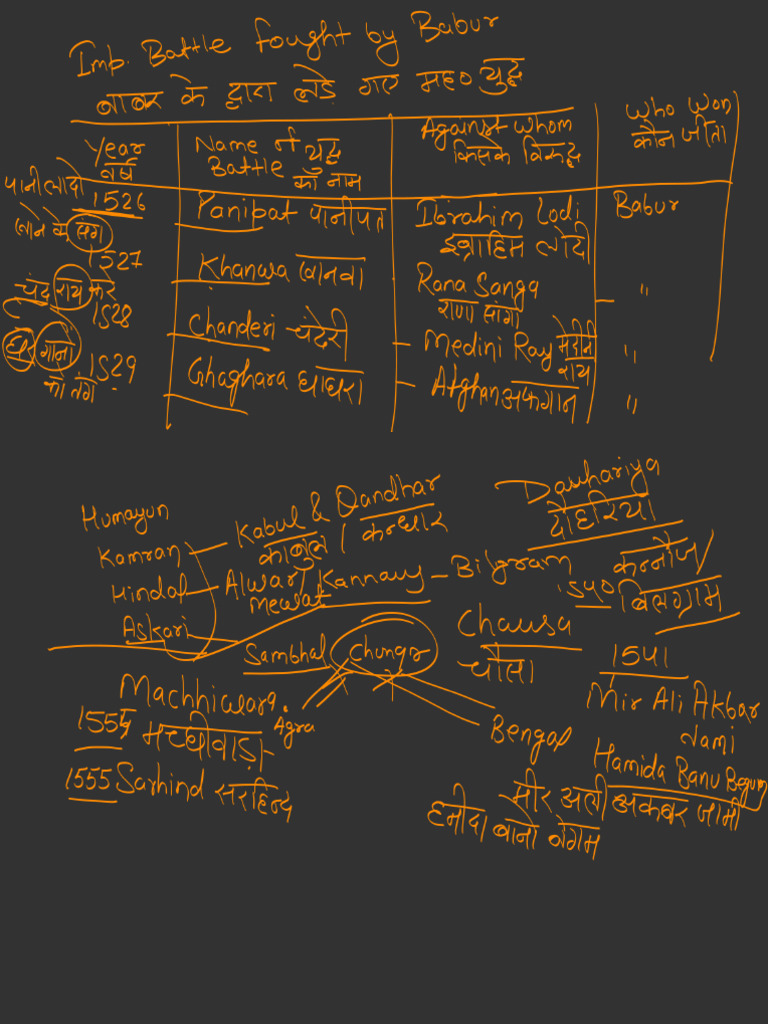 Imp. Battle fought by Babur
बाबर के द्वारा लड़े गए मह० युद्ध
Year वर्ष
Name of Battle युद्ध का नाम
Against whom किसके विरुद्ध
Who Won कौन जीता
पानी लादो
1526
Panipat पानीपत
Ibrahim Lodi
इब्राहिम लोदी
Babur
खाने के संग
1527
Khanwa खानवा
Rana Sanga
राणा सांगा
"
चंद्र राय करे
1528
Chanderi चंदेरी
Medini Ray मेदिनी राय
"
1529
Ghaghara घाघरा
Afghan अफगान
"
Humayun
Kamran – Kabul & Qandhar
काबुल / कन्धार
Hindal – Alwar/
Mewat
Askari – Sambhal
Chunar
Agra
Bengal
Dauhariya
दौहरिया
Kannauj – Bilgram
1540
कन्नौज/
बिलग्राम
Chausa
चौसा
1541
Mir Ali Akbar
Jami
Hamida Banu Begum
मीर अली अकबर जामी
हमीदा बानो बेगम
Machhiwara
मच्छीवाड़ा
1555 Sarhind सरहिन्द